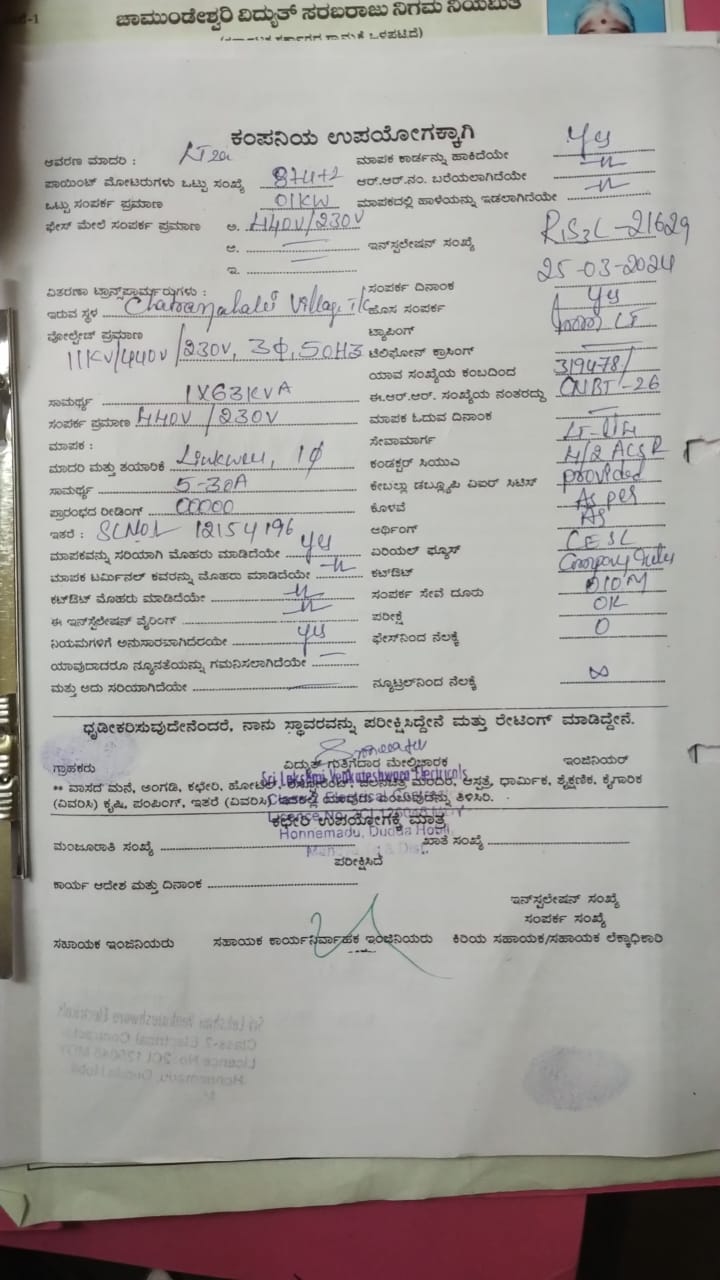 ಚಾಮುಂಡೇಶ್ವರಿ ವಿದ್ಯುತ್ ಸರಬರಾಜು ನಿಗಮ ನಿಯಮಿತ
ಕಂಪನಿಯ ಉಪಯೋಗಕ್ಕಾಗಿ
ಆವರಣ ಮಾದರಿ : ಮಾಪಕ ಕಾರ್ಡನ್ನು ಹಾಕಿದೆಯೇ Yes
ಪಾಯಿಂಟ್ ಮೋಟರುಗಳು ಒಟ್ಟು ಸಂಖ್ಯೆ ಆರ್.ಆರ್.ನಂ. ಬರೆಯಲಾಗಿದೆಯೇ -"-
ಒಟ್ಟು ಸಂಪರ್ಕ ಪ್ರಮಾಣ 01KW ಮಾಪಕದಲ್ಲಿ ಹಾಳೆಯನ್ನು ಇಡಲಾಗಿದೆಯೇ -"-
ಫೇಸ್ ಮೇಲೆ ಸಂಪರ್ಕ ಪ್ರಮಾಣ ಅ. 440V/230V
ಆ. ಇನ್‌ಸ್ಟಲೇಷನ್ ಸಂಖ್ಯೆ -21629
ಇ.
ವಿತರಣಾ ಟ್ರಾನ್ಸ್‌ಫಾರ್ಮರುಗಳು : ಸಂಪರ್ಕ ದಿನಾಂಕ 25-03-2024
ಇರುವ ಸ್ಥಳ Village ಹೊಸ ಸಂಪರ್ಕ Yes
ವೋಲ್ಟೇಜ್ ಪ್ರಮಾಣ ಟ್ಯಾಪಿಂಗ್ LT
11KV/440V/230V, 3Φ, 50HZ ಟೆಲಿಫೋನ್ ಕ್ರಾಸಿಂಗ್
ಯಾವ ಸಂಖ್ಯೆಯ ಕಂಬದಿಂದ 319478/
ಸಾಮರ್ಥ್ಯ 1X63KVA ಈ.ಆರ್.ಆರ್. ಸಂಖ್ಯೆಯ ನಂತರದ್ದು -26
ಸಂಪರ್ಕ ಪ್ರಮಾಣ 440V/230V ಮಾಪಕ ಓದುವ ದಿನಾಂಕ
ಮಾಪಕ : ಸೇವಾಮಾರ್ಗ
ಮಾದರಿ ಮತ್ತು ತಯಾರಿಕೆ Linkwell, 1Φ ಕಂಡಕ್ಟರ್ ಸಿಯುಎ 4/2 ACSR
ಸಾಮರ್ಥ್ಯ 5-30A ಕೇಬಲ್ಲು ಡಬ್ಲ್ಯೂಪಿ ವಿಐರ್ ಸಿಟಿಸ್ provided
ಪ್ರಾರಂಭದ ರೀಡಿಂಗ್ 00000 ಕೊಳವೆ As per
ಇತರೆ : SLNO1 12154196 ಅರ್ಥಿಂಗ್ As
ಮಾಪಕವನ್ನು ಸರಿಯಾಗಿ ಮೊಹರು ಮಾಡಿದೆಯೇ Yes ಏರಿಯಲ್ ಫ್ಯೂಸ್ CESC
ಮಾಪಕ ಟರ್ಮಿನಲ್ ಕವರನ್ನು ಮೊಹರು ಮಾಡಿದೆಯೇ -"- ಕಟ್‌ಔಟ್ Company
ಕಟ್‌ಔಟ್ ಮೊಹರು ಮಾಡಿದೆಯೇ -"- ಸಂಪರ್ಕ ಸೇವೆ ದೂರು
ಈ ಇನ್‌ಸ್ಟಲೇಷನ್ ವೈರಿಂಗ್ -"- ಪರೀಕ್ಷೆ OK
ನಿಯಮಗಳಿಗೆ ಅನುಸಾರವಾಗಿದೆಯೇ Yes ಫೇಸ್‌ನಿಂದ ನೆಲಕ್ಕೆ 0
ಯಾವುದಾದರೂ ನ್ಯೂನತೆಯನ್ನು ಗಮನಿಸಲಾಗಿದೆಯೇ
ಮತ್ತು ಅದು ಸರಿಯಾಗಿದೆಯೇ ನ್ಯೂಟ್ರಲ್‌ನಿಂದ ನೆಲಕ್ಕೆ ∞
ಧೃಡೀಕರಿಸುವುದೇನೆಂದರೆ, ನಾನು ಸ್ಥಾವರವನ್ನು ಪರೀಕ್ಷಿಸಿದ್ದೇನೆ ಮತ್ತು ರೇಟಿಂಗ್ ಮಾಡಿದ್ದೇನೆ.
ಗ್ರಾಹಕರು ವಿದ್ಯುತ್ ಗುತ್ತಿಗೆದಾರ ಮೇಲ್ವಿಚಾರಕ ಇಂಜಿನಿಯರ್
Sri Lakshmi Venkateshwara Electricals
** ವಾಸದ ಮನೆ, ಅಂಗಡಿ, ಕಛೇರಿ, ಹೋಟೆಲ್, ಆಸ್ಪತ್ರೆ, ಧಾರ್ಮಿಕ, ಶೈಕ್ಷಣಿಕ, ಕೈಗಾರಿಕೆ
(ವಿವರಿಸಿ) ಕೃಷಿ, ಪಂಪಿಂಗ್, ಇತರೆ (ವಿವರಿಸಿ) ತಿಳಿಸಿರಿ.
ಕಛೇರಿ ಉಪಯೋಗಕ್ಕೆ ಮಾತ್ರ
Honnemadu, Dudda Hobli
ಮಂಜೂರಾತಿ ಸಂಖ್ಯೆ ಖಾತೆ ಸಂಖ್ಯೆ
ಪರೀಕ್ಷಿಸಿದೆ
ಕಾರ್ಯ ಆದೇಶ ಮತ್ತು ದಿನಾಂಕ
ಇನ್‌ಸ್ಟಲೇಷನ್ ಸಂಖ್ಯೆ
ಸಂಪರ್ಕ ಸಂಖ್ಯೆ
ಸಹಾಯಕ ಇಂಜಿನಿಯರು ಸಹಾಯಕ ಕಾರ್ಯನಿರ್ವಾಹಕ ಇಂಜಿನಿಯರು ಕಿರಿಯ ಸಹಾಯಕ/ಸಹಾಯಕ ಲೆಕ್ಕಾಧಿಕಾರಿ